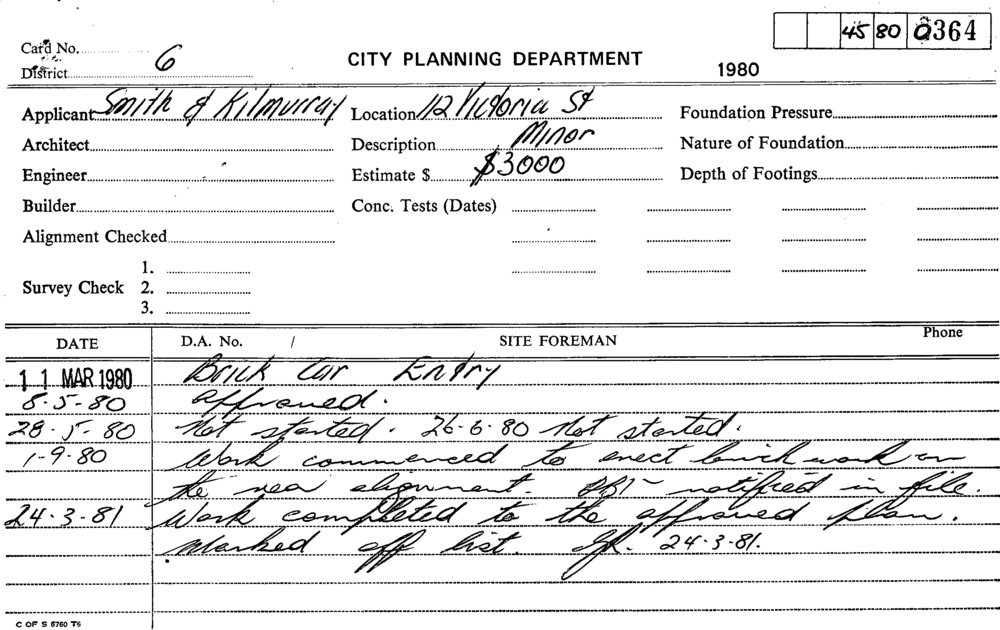 45 80 0364
Card No.
District 6
CITY PLANNING DEPARTMENT
1980
Applicant Smith & Kilmurray Location 112 Victoria St Foundation Pressure
Architect Description Minor Nature of Foundation
Engineer Estimate $ $3000 Depth of Footings
Builder Conc. Tests (Dates)
Alignment Checked
1.
Survey Check 2.
3.
DATE D.A. No. / SITE FOREMAN Phone
11 MAR 1980 Brick Car Entry
8-5-80 approved.
28-5-80 Not started. 26-6-80 Not started.
1-9-80 Work commenced to erect brickwork on
the rear alignment. notified in file.
24-3-81 Work completed to the approved plan.
Marked off list. 24-3-81.
C OF S 6760 T6